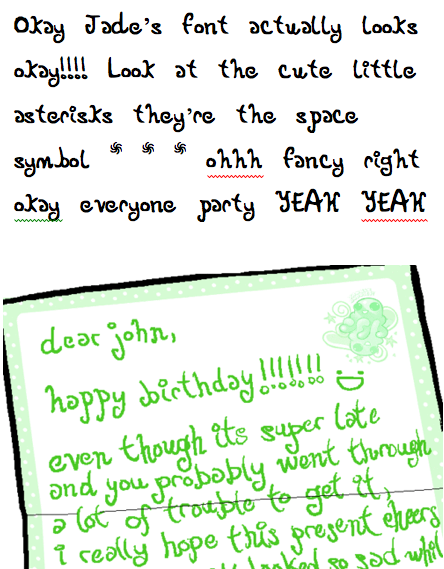 Okay Jade's font actually looks
okay!!!! Look at the cute little
asterisks they're the space
symbol * * * ohhh fancy right
okay everyone party YEAH YEAH
dear john,
happy birthday!!!!!!!
even though its super late
and you probably went through
a lot of trouble to get it,
i really hope this present cheers
looked so sad